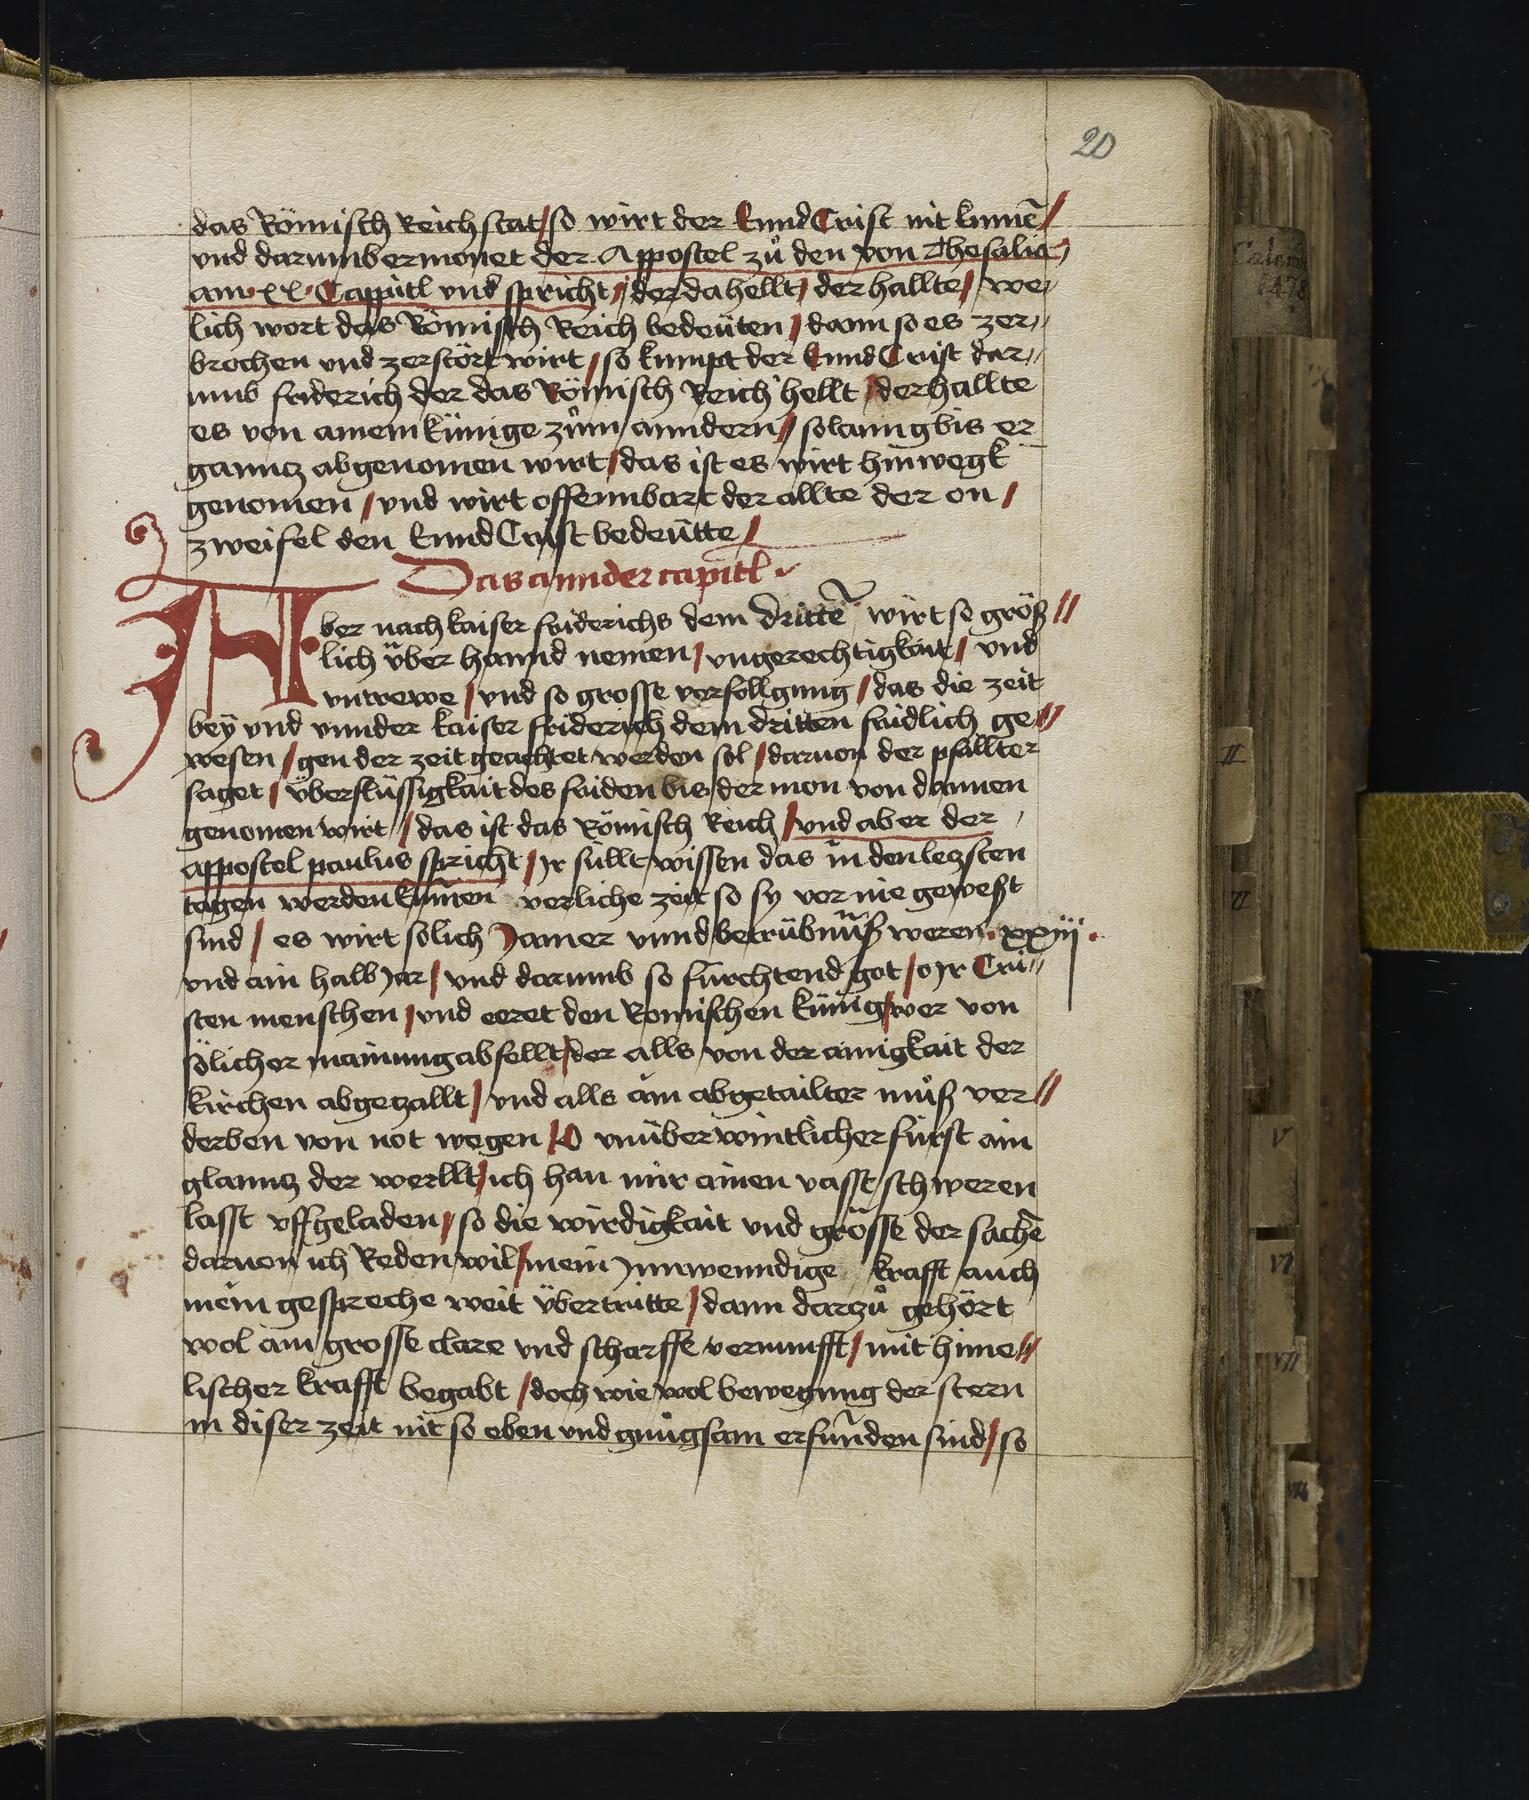 20
das Römisch Reich stat / so wirt der EnndCrist nit kumē /
vnd darumb ermonet der Appostel zů den von Thesalia /
am · xx · Cappitl vnd spricht / der da hellt / der hallte / we-
lich wort das Römisch Reich bedeüten / dann so es zer-
brochen vnd zerstört wirt / so kumpt der EnndCrist dar-
umb friderich der das Römisch Reich hellt / der hallte
es von ainem künige zům anndern / solanng bis er
ganntz abgenomen wirt / das ist es wirt hinwegk
genomen / vnd wirt offennbart der allte der on /
zweifel den EnndCrist bedeütte /
Das annder capitl
Aber nach kaiser friderichs dem drittē wirt so größ //
lich über hannd nemen / vngerechtigkait / vnd
vntrewe / vnd so grosse verfollgung / das die zeit
bey vnd vnnder kaiser friderich dem dritten fridlich ge //
wesen / gen der zeit geachtet werden sol / daruon der psallter
saget / überflüssigkait des friden bis der mon von dannen
genomen wirt / das ist das Römisch Reich / vnd aber der
appostel paulus spricht / Jr süllt wissen das in den letzsten
tagen werden kumen verliche zeit so sy vor nie geweßt
sind / es wirt solich Jamer vnnd betrübnüß weren · xxiij ·
vnd ain halb Jar / vnd darumb so fürchtend got / o Jr Cri //
sten menschen / vnd eeret den Romischen künig / wer von
sölicher mainung abfellt / der alls von der ainigkait der
kirchen abgezallt / vnd alls ain abgetailter můß ver //
derben von not wegen / O vnüberwintlicher fürst ain
glanntz der werllt / ich han mir ainen vasst schweren
lasst vffgeladen / so die wirdigkait vnd grösse der sachē
daruon ich Reden wil / mein Jnnwenndige krafft auch
mein gespreche weit übertritte / dann darzů gehört
wol ain grosse clare vnd scharffe vernunfft / mit hime //
lischer krafft begabt / doch wie wol bewegung der stern
in diser zeit nit so eben vnd gnůgsam erfunden sind / so
Calend
1478
II
V
VI
VII